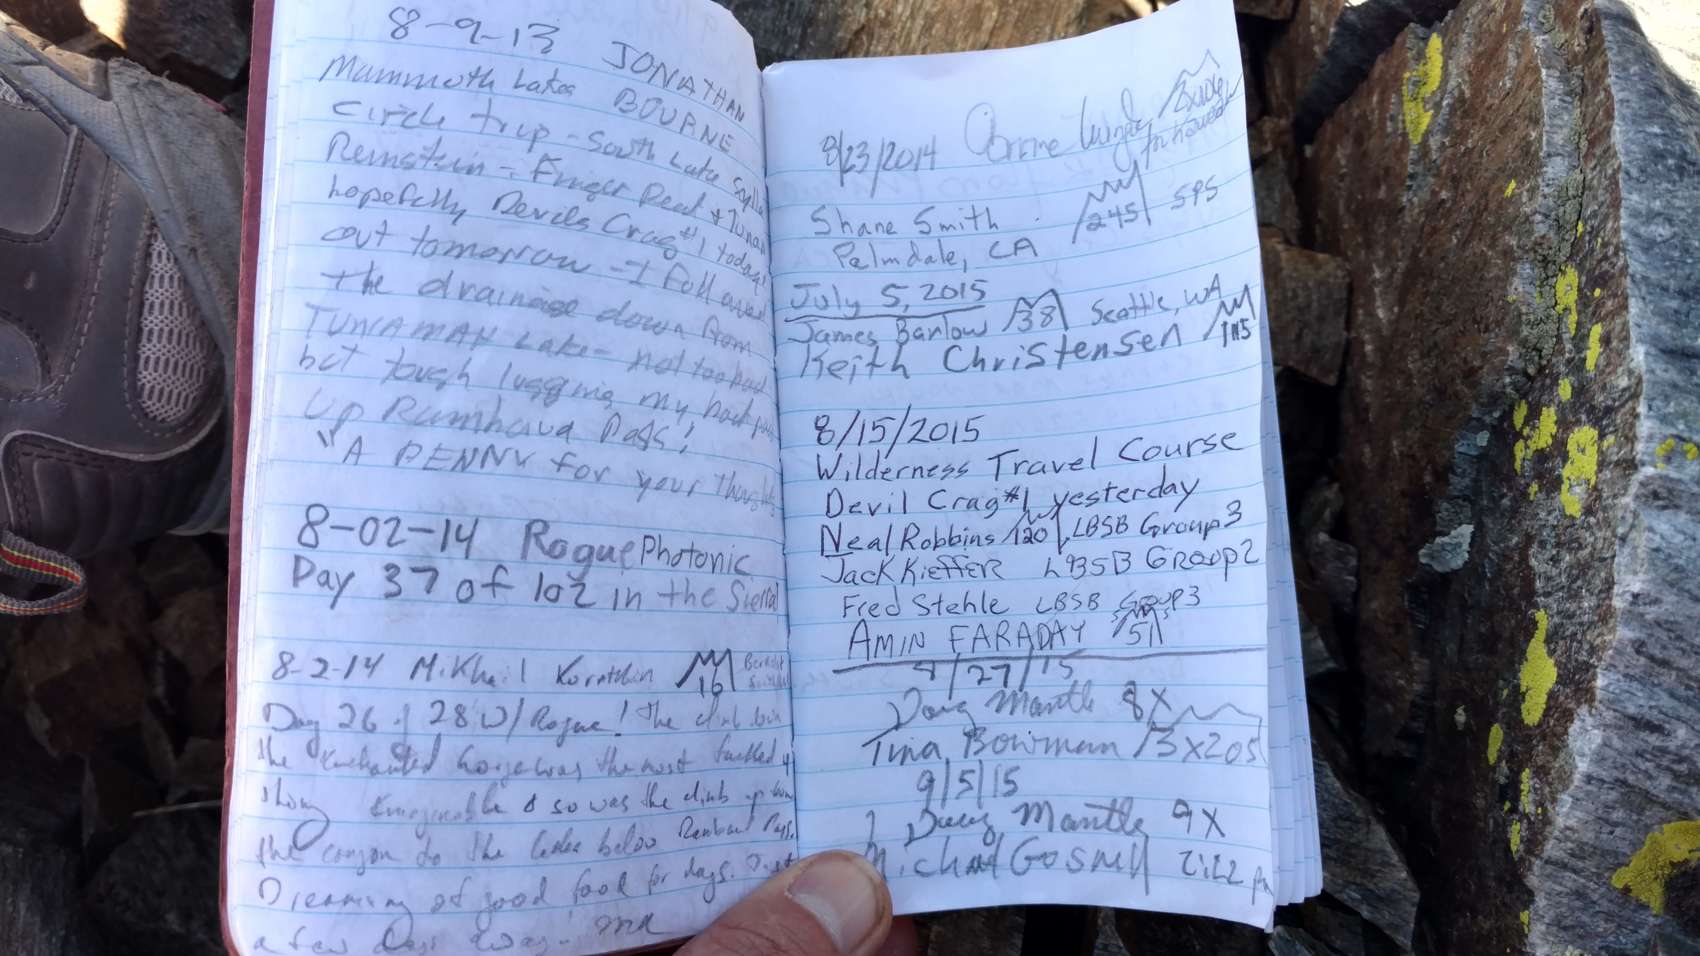 8-9-13 JONATHAN
Mammoth Lakes BOURNE
Circle trip - South Lake
Reinstein - Finger Peak +
hopefully Devils Crag #1 today!
out tomorrow - I followed
the drainage down from
TUNEMAH Lake - not too bad
but tough lugging my backpack
up Rambaud Pass!
"A PENNY for your thoughts
8-02-14 Rogue Photonic
Day 37 of 102 in the Sierra
8-2-14 Mikhail
16
Day 26 of 28 w/ Rogue! The climb down
the Enchanted Gorge was the most
imaginable & so was the climb up from
the canyon to the lakes below Pass.
Dreaming of good food for days. Just
a few days away.
8/23/2014 Corrine
Shane Smith 245 SPS
Palmdale, CA
July 5, 2015
James Barlow 38 Seattle, WA
Keith Christensen 115
8/15/2015
Wilderness Travel Course
Devil Crag #1 yesterday
Neal Robbins 120 LBSB Group 3
Jack Kieffer LBSB Group 2
Fred Stehle LBSB Group 3
AMIN FARADAY 51
8/27/15
Doug Mantle 8X
Tina Bowman 3x205
9/5/15
Doug Mantle 9X
Michael Gosnell